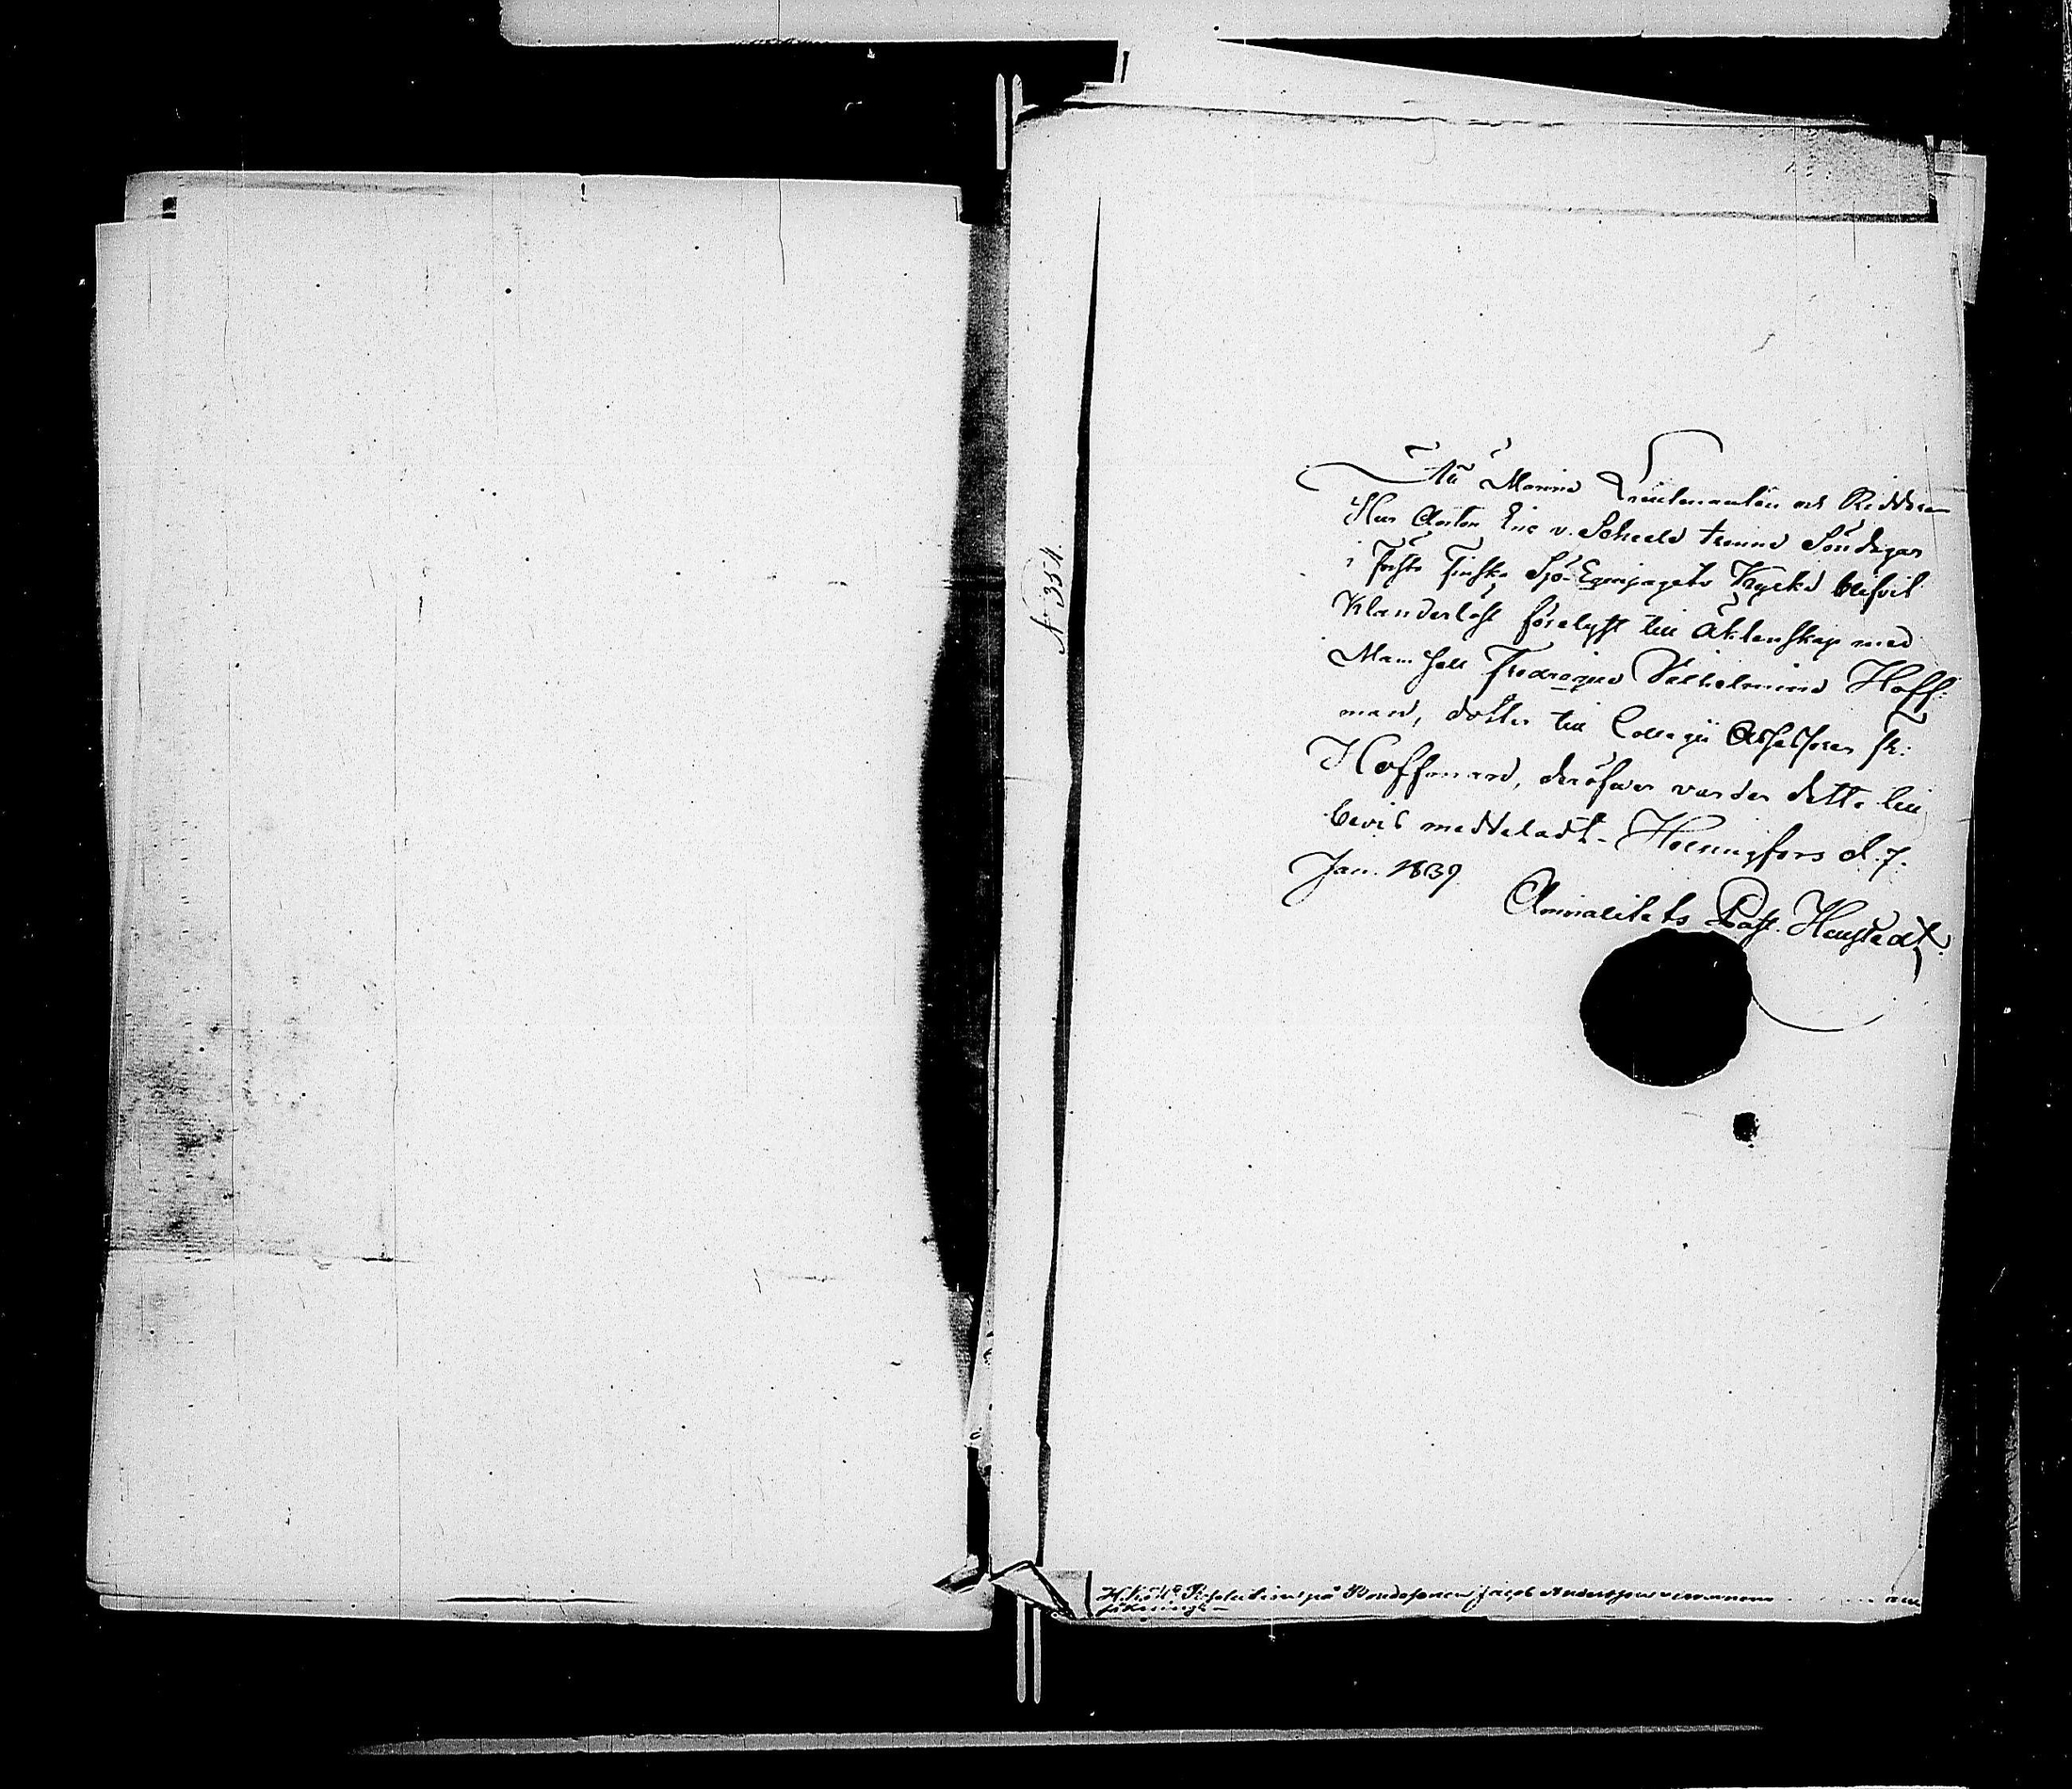 N:o 354.
Att Marine Lieutenanten och Riddaren
Herr Anton Eric v. Scheele trenne Söndagar
i Första Finska Sjö-Equipagets Kyrka blifvit
Klanderlöst förelyst till Äktenskap med
Mamsell Fredrique Vilhelmine Hoff-
man, dotter till Collegii Assessoren
Hoffman, deröfver varder detta till
bevis meddeladt. Helsingfors d. 7.
Jan. 1839.
Past.
Resolution på Jacob Anderssons